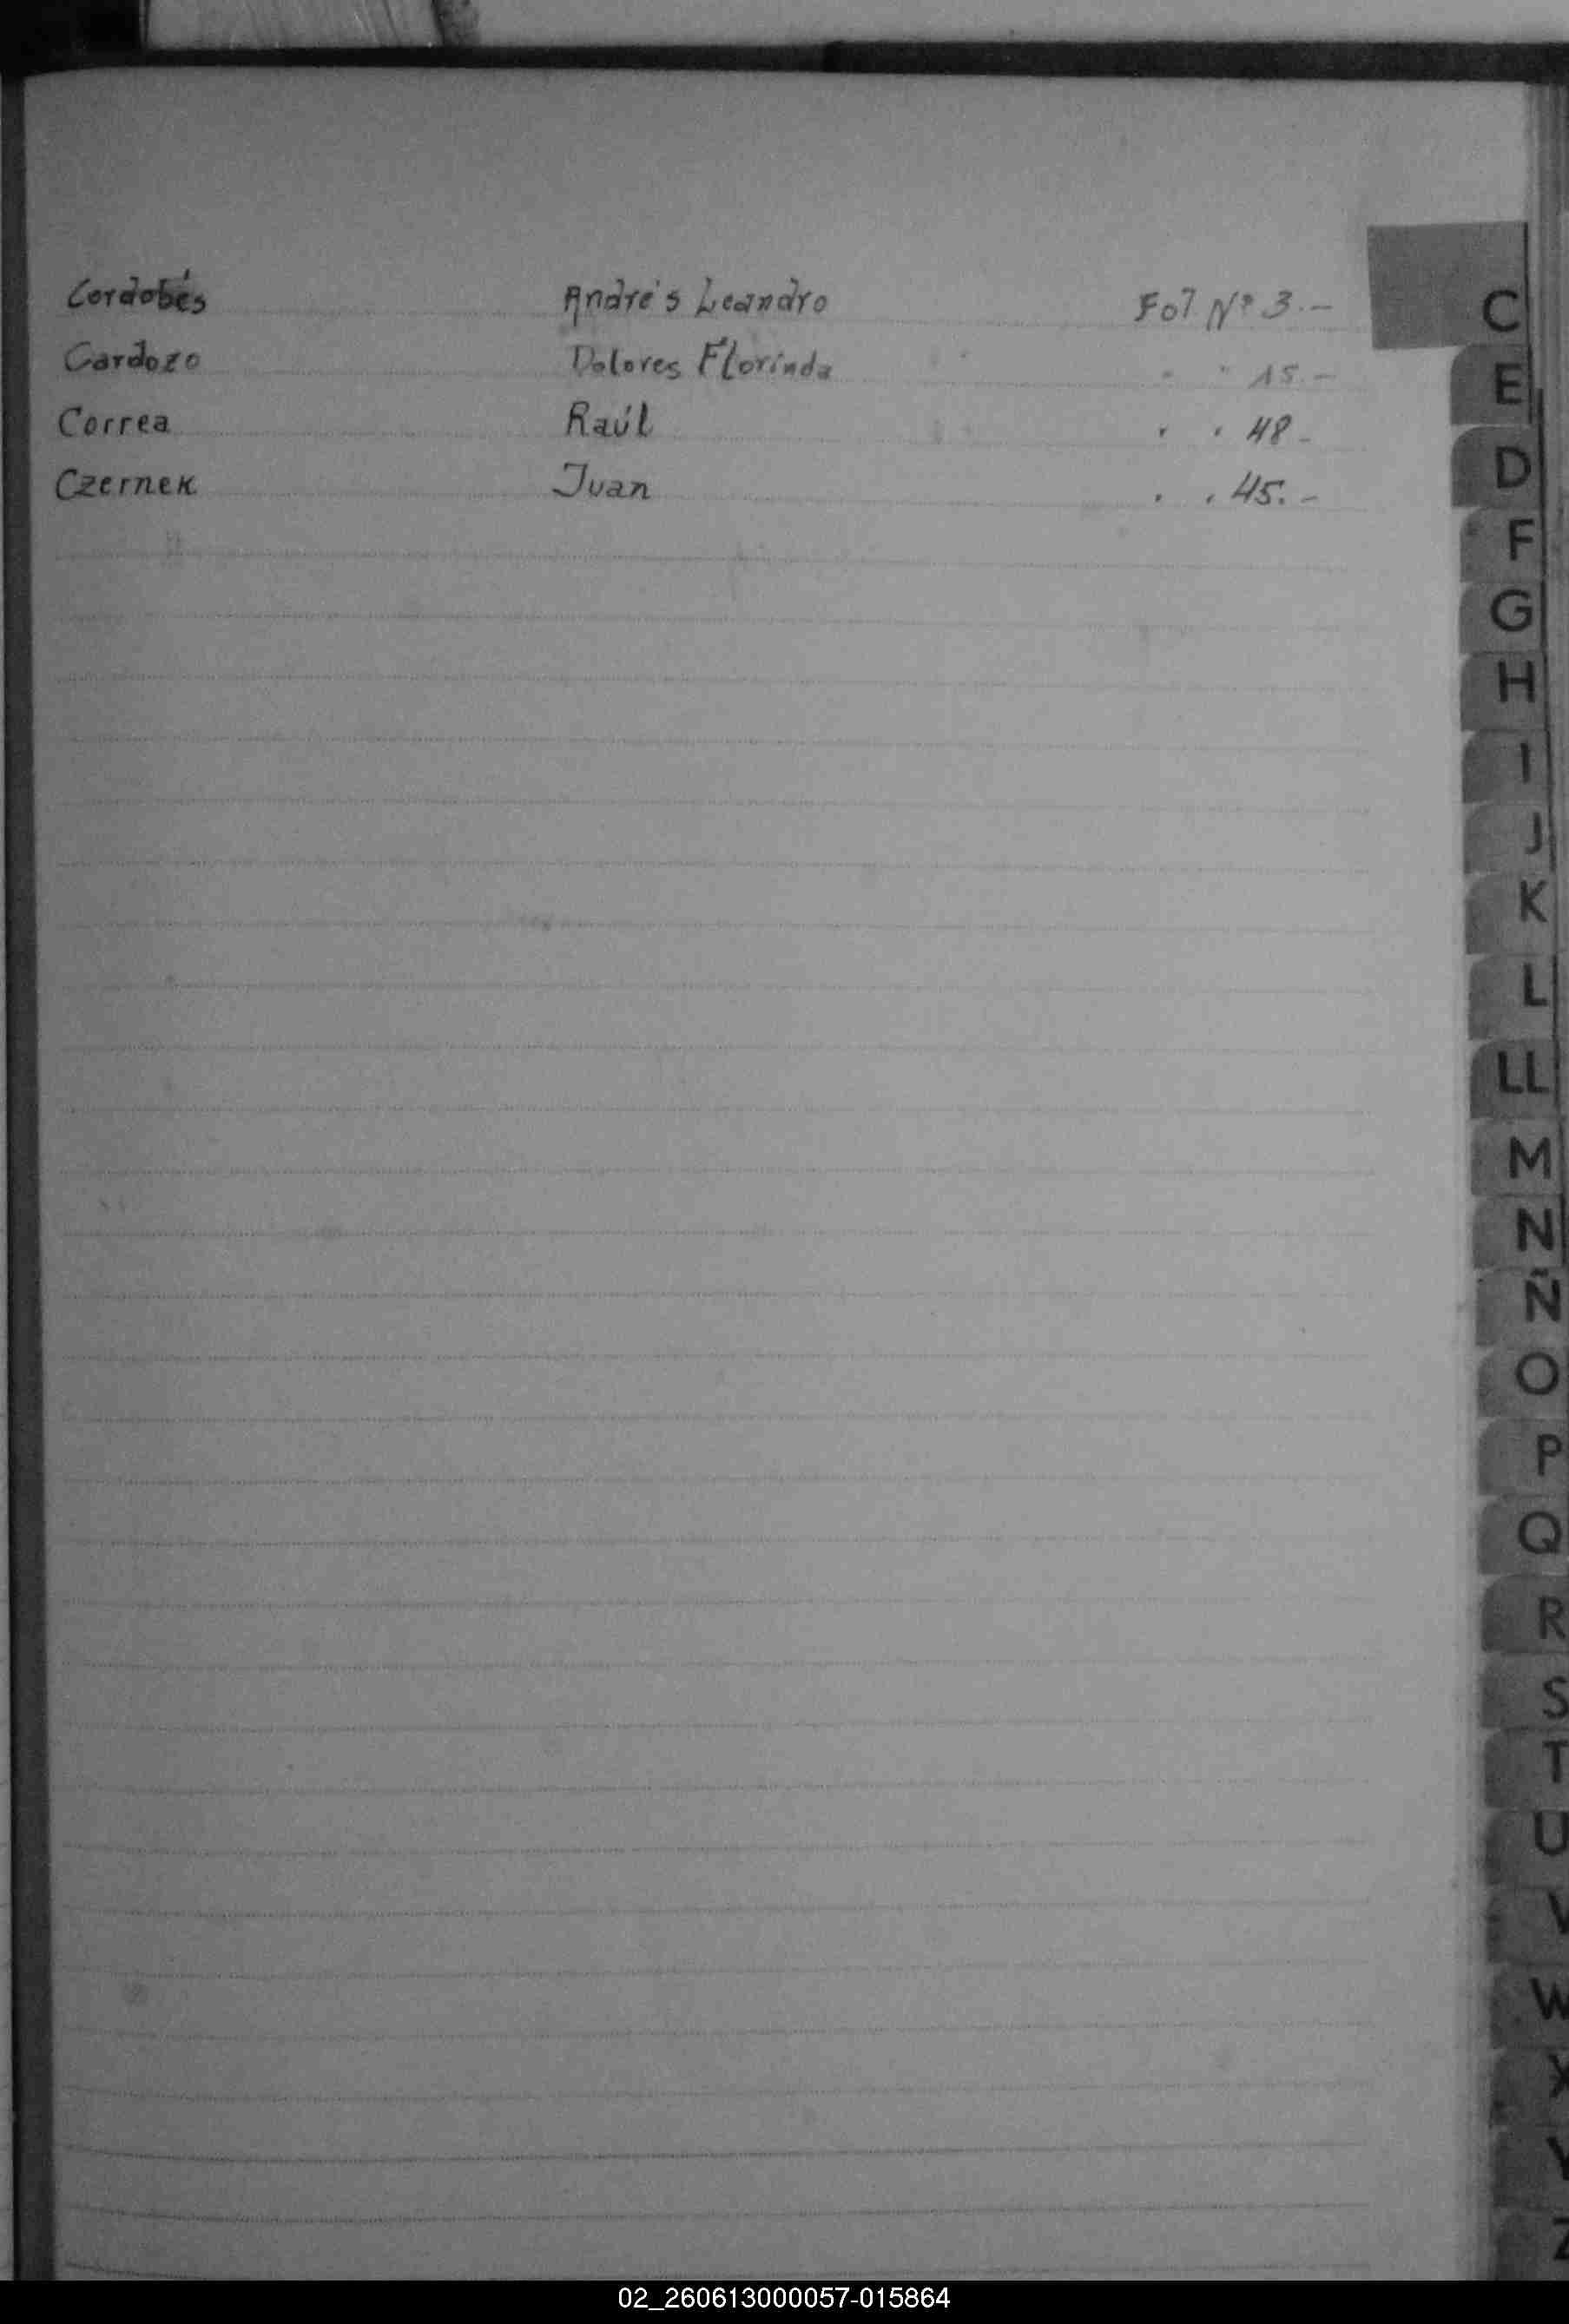 Cordobés Andrés Leandro Fol Nº 3.-
Cardozo Dolores Florinda " " 15.-
Correa Raúl " " 48-
Czernek Juan " " 45.-
C
E
D
F
G
H
I
J
K
L
LL
M
N
Ñ
O
P
Q
R
S
T
U
V
W
X
Y
Z
02_260613000057-015864